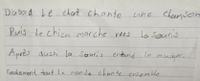 Dabord Le chat chante une chanson
Puis le chien marche vers la souris
Après la souris entend la musique
tout le monde chante ensemble